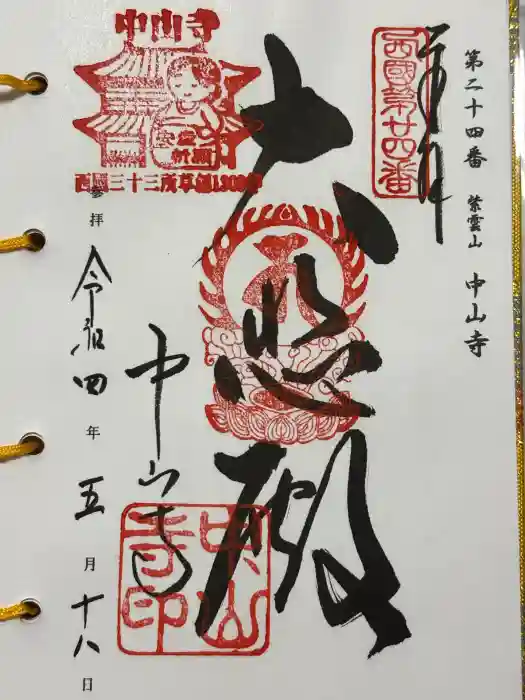 第二十四番 紫雲山 中山寺
奉拝
西國第廿四番
大悲殿
中山寺
西国三十三所草創1300年
安産
祈願
中山寺
中山寺印
参拝 令和四年五月十八日